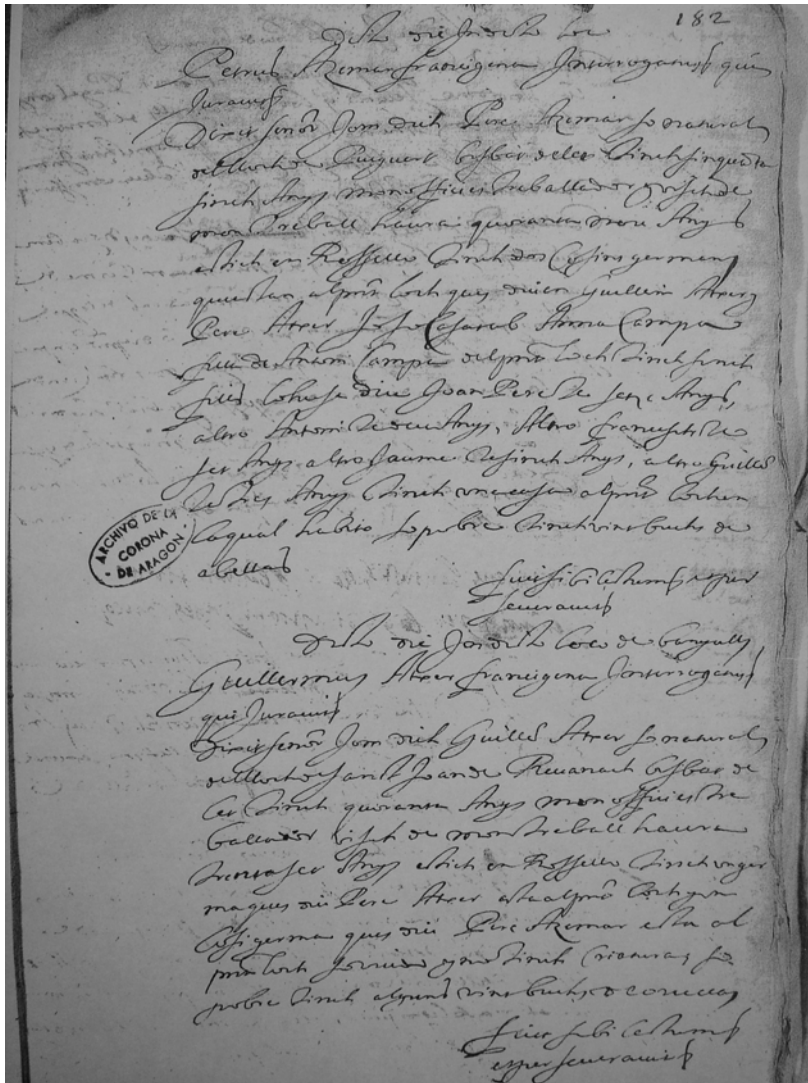 182
Dicto die In dicto loco
Petrus Azemar francigena Interrogatus qui
Juravit
Dixit senor Jom dich Pere Azemar so natural
del loch de Puiguert bisbat de les tinch sinquanta
sinch Anys mon offici es treballador y visch de
mon treball haura quoranta nou Anys
estich en Rossello tinch dos Cosins germans
que estan al pnt loch ques diuen Guillem Atxer y
Pere Atxer so Casat ab Anna Campa
filla de Antoni Campa del pnt loch tinch sinch
fills lo hu se diu Joan Pere te setze Anys,
altro Antoni te deu Anys, Altro francesch te
set Anys altro Jaume te sinch Anys, altro Guillem
te tres Anys tinch una casa al pnt loch en
la qual habito so pobre tinch vint buchs de
abellas
ARCHIVO DE LA
CORONA
DE ARAGON
fuit sibi lectum et per
severavit
Dicto die In dicto loco de banyuls
Guillermus Atxer francigena Interrogatus
qui Juravit
Dixit senor Jom dich Guillem Atxer so natural
del loch de sanct Joan de bisbat de
les tinch quoranta Anys mon offici es tre
ballador visch de mon treball haura
trenta set Anys estich en Rossello tinch un ger
ma ques diu Pere Atxer esta al pnt loch y un
Cosi germa ques diu Pere Azemar esta al
pnt loch so viudo y no tinch Criaturas so
pobre tinch alguns vint buchs de
fuit sibi lectum
et perseveravit